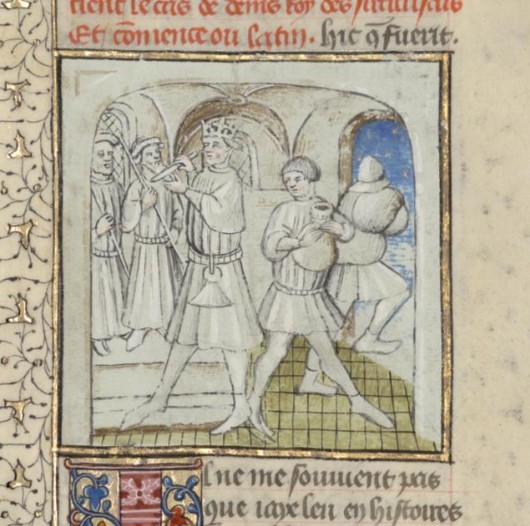 tient le cas de denis roy des siracusais
Et cōmence ou latin. hic q̄ fuerit.
l ne me souuient pas
que iaye leu en histoires